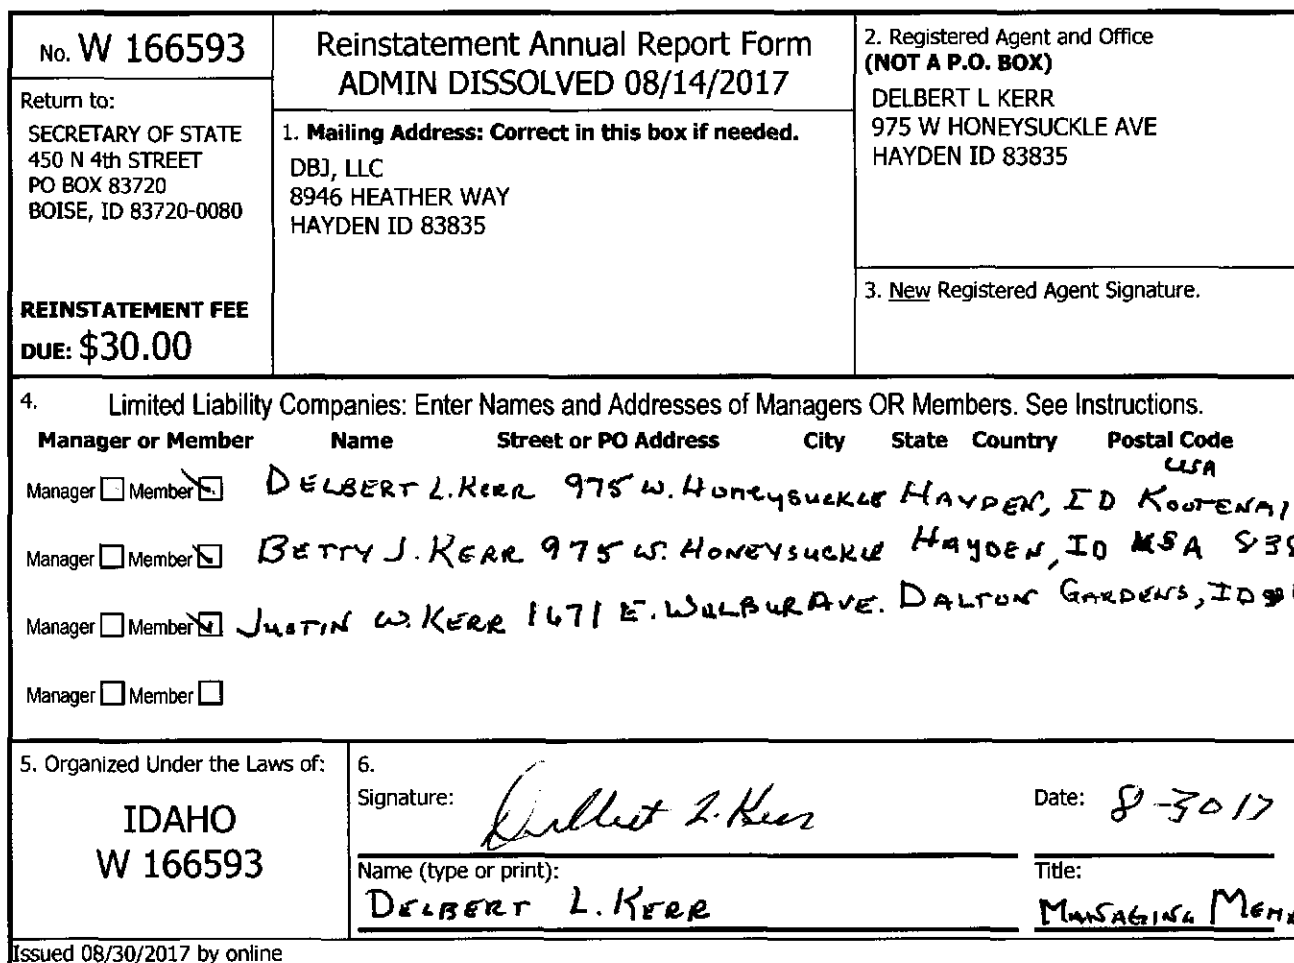 No. W 166593
Return to:
SECRETARY OF STATE
450 N 4th STREET
PO BOX 83720
BOISE, ID 83720-0080
REINSTATEMENT FEE
DUE: $30.00
Reinstatement Annual Report Form
ADMIN DISSOLVED 08/14/2017
1. Mailing Address: Correct in this box if needed.
DBJ, LLC
8946 HEATHER WAY
HAYDEN ID 83835
2. Registered Agent and Office
(NOT A P.O. BOX)
DELBERT L KERR
975 W HONEYSUCKLE AVE
HAYDEN ID 83835
3. New Registered Agent Signature.
4. Limited Liability Companies: Enter Names and Addresses of Managers OR Members. See Instructions.
Manager or Member Name Street or PO Address City State Country Postal Code
USA
Manager Member DELBERT L. KERR 975 W. HONEYSUCKLE HAYDEN, ID KOOTENAI
Manager Member BETTY J. KERR 975 W. HONEYSUCKLE HAYDEN, ID USA
Manager Member JUSTIN W. KERR 1671 E. WILBUR AVE. DALTON GARDENS, ID
Manager Member
5. Organized Under the Laws of:
IDAHO
W 166593
6.
Signature: Delbert L. Kerr
Date: 8-30 17
Name (type or print):
DELBERT L. KERR
Title:
MANAGING
Issued 08/30/2017 by online